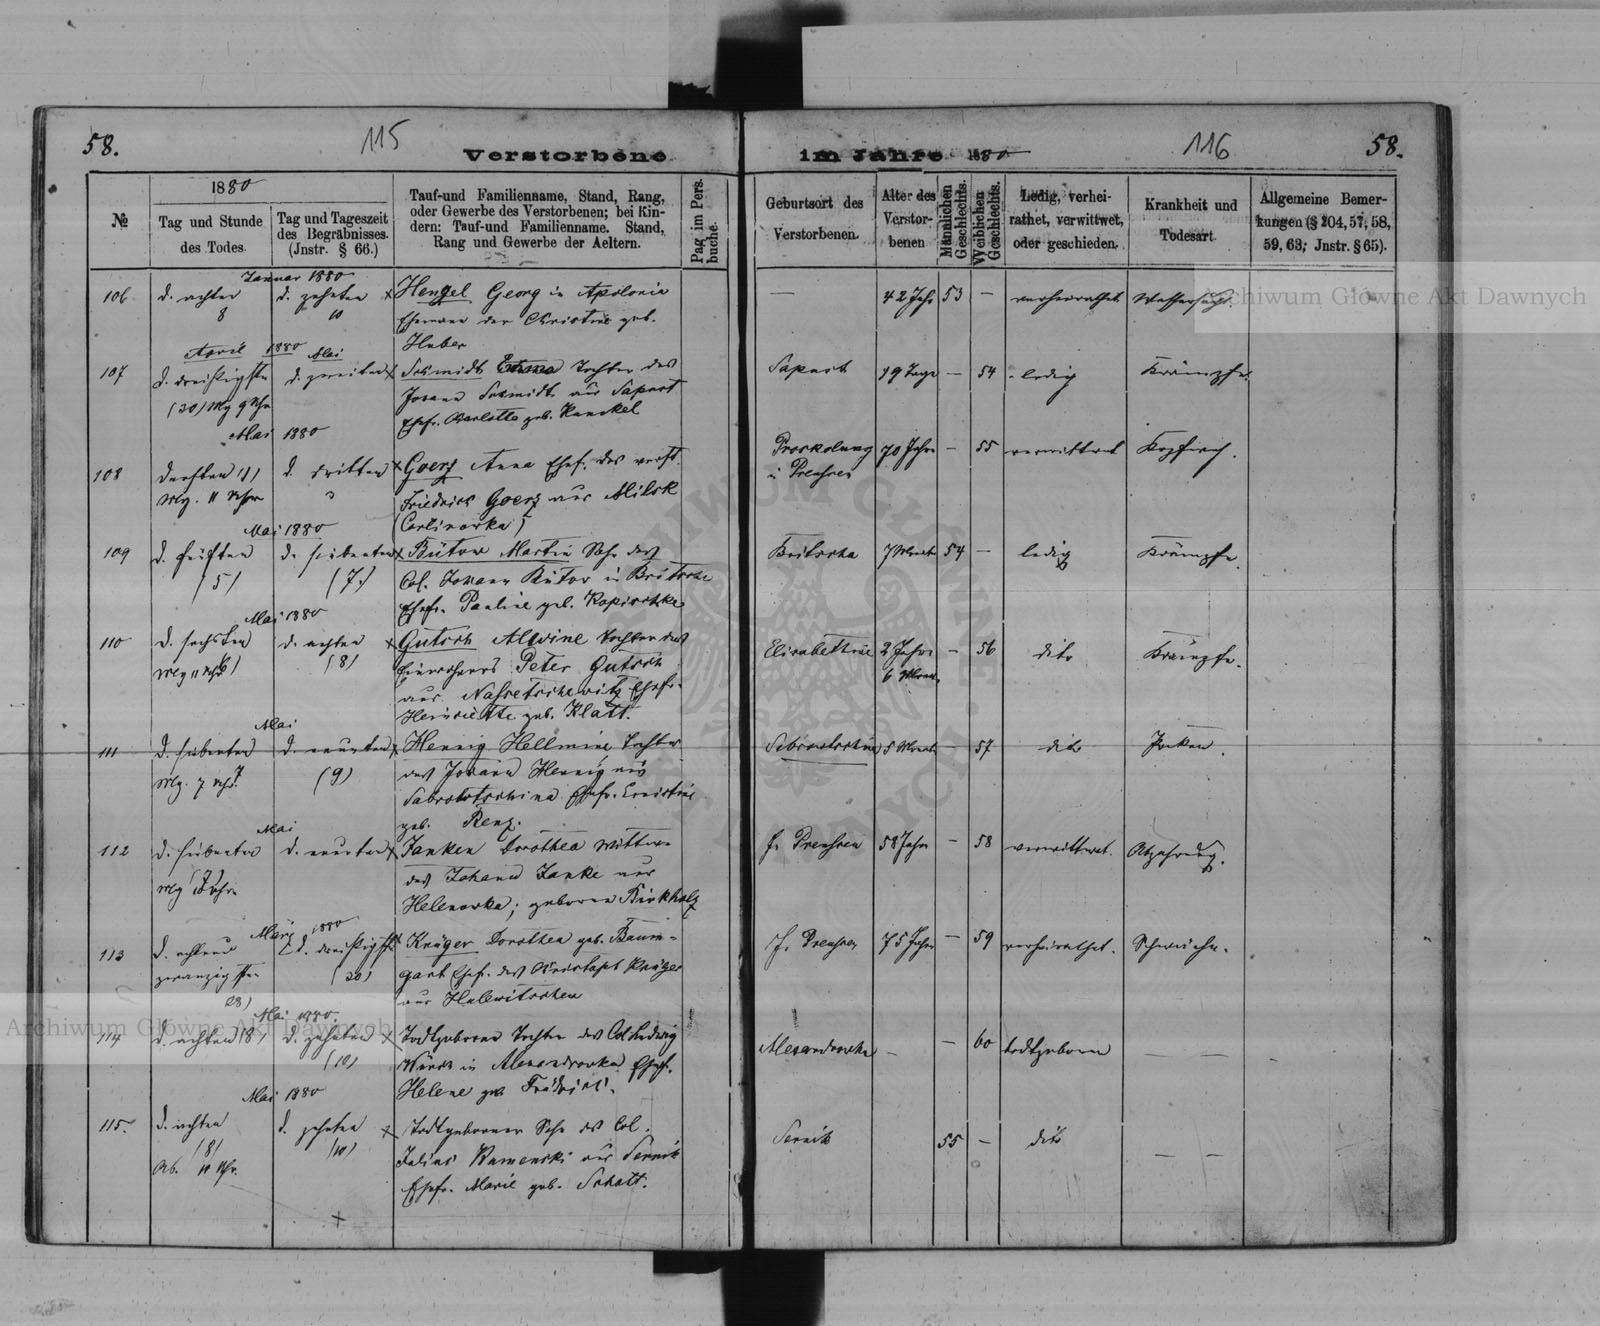 58.
115
Verstorbene
im Jahre 1880
116
58.
№
1880
Tag und Stunde
des Todes.
Tag und Tageszeit
des Begräbnisses.
(Jnstr. § 66.)
Tauf-und Familienname, Stand, Rang,
oder Gewerbe des Verstorbenen; bei Kin-
dern: Tauf-und Familienname. Stand,
Rang und Gewerbe der Aeltern.
Pag. im Pers.
buche.
Geburtsort des
Verstorbenen.
Alter des
Verstor-
benen
Männlichen
Geschlechts.
Weiblichen
Geschlechts.
Ledig, verhei-
rathet, verwittwet,
oder geschieden.
Krankheit und
Todesart.
Allgemeine Bemer-
kungen (§ 204, 57, 58,
59, 63; Jnstr. § 65).
Januar 1880
106
d. achten
8
d. zehnten
10
Hengel Georg in Apolonia
Ehemann der Christine geb.
Huber
42 Jahr
53
—
verheirathet
Wassersucht.
April 1880
Mai
107
d. dreißigsten
(30) Mg 9 Uhr
d. zweiten
Schmidt Emma Tochter des
Johann Schmidt aus Sapust
Ehefr. Charlotte geb. Kunckel
Sapust
19 Tage
—
54
ledig
Krämpfe.
Mai 1880
108
d. ersten (1)
Mg. 11 Uhr
d. dritten
3
Goerz Anna Ehef. des verst.
Friedrich Goerz aus Milsk
(Carlinowka)
in Preußen
70 Jahre
—
55
verwittwet
Mai 1880
109
d. fünften
(5)
d. siebenten
(7.)
Bütow Martin Sohn des
Col. Johann Bütow in Britscha
Ehefr. Pauline geb.
Britscha
7 Monat
54
—
ledig
Krämpfe.
Mai 1880
110
d. sechsten
d. achten
(8)
Gutsch Alwine Tochter des
Peter Gutsch
aus Ehefr.
Heinriette geb. Klatt.
2 Jahre
6 Monat
—
56
dito
Krämpfe.
Mai
111
d. siebenten
Mg. 7 Uhr
d. neunten
(9)
Hennig Hellmine, Tochter
des Johann Hennig aus
Ehefr. Ernistine
geb. Renz.
5 Monat
—
57
dito
Pocken.
Mai
112
d. siebenten
d. neunten
Janken Dorothea Wittwe
des Johann Janke aus
Helenowka; geborene Birkholz
Preußen
58 Jahre
—
58
verwittwet.
Abzehrung.
März 1880
113
d. acht und
zwanzigsten
28)
d. dreißigsten
(30)
Krüger Dorothea geb. Baum-
gart Ehef. des Christoph Krüger
aus
Preußen
75 Jahre
—
59
verheirathet.
Schwäche.
Mai 1880.
114
d. achten (8)
d. zehnten
(10)
Todtgeborene Tochter des Col. Ludwig
in Alexandrowka Ehef.
Helene geb. Friedrich.
Alexandrowka
—
—
60
todtgeboren
— —
Mai 1880
115.
d. achten
(8)
Ab. 10 Uhr.
d. zehnten
(10)
Todtgeborener Sohn des Col.
Julius Kamenski aus Sernik
Ehefr. Marie geb. Schatt.
Sernik
55
—
dito
— —
Archiwum Główne Akt Dawnych
Archiwum Główne Akt Dawnych